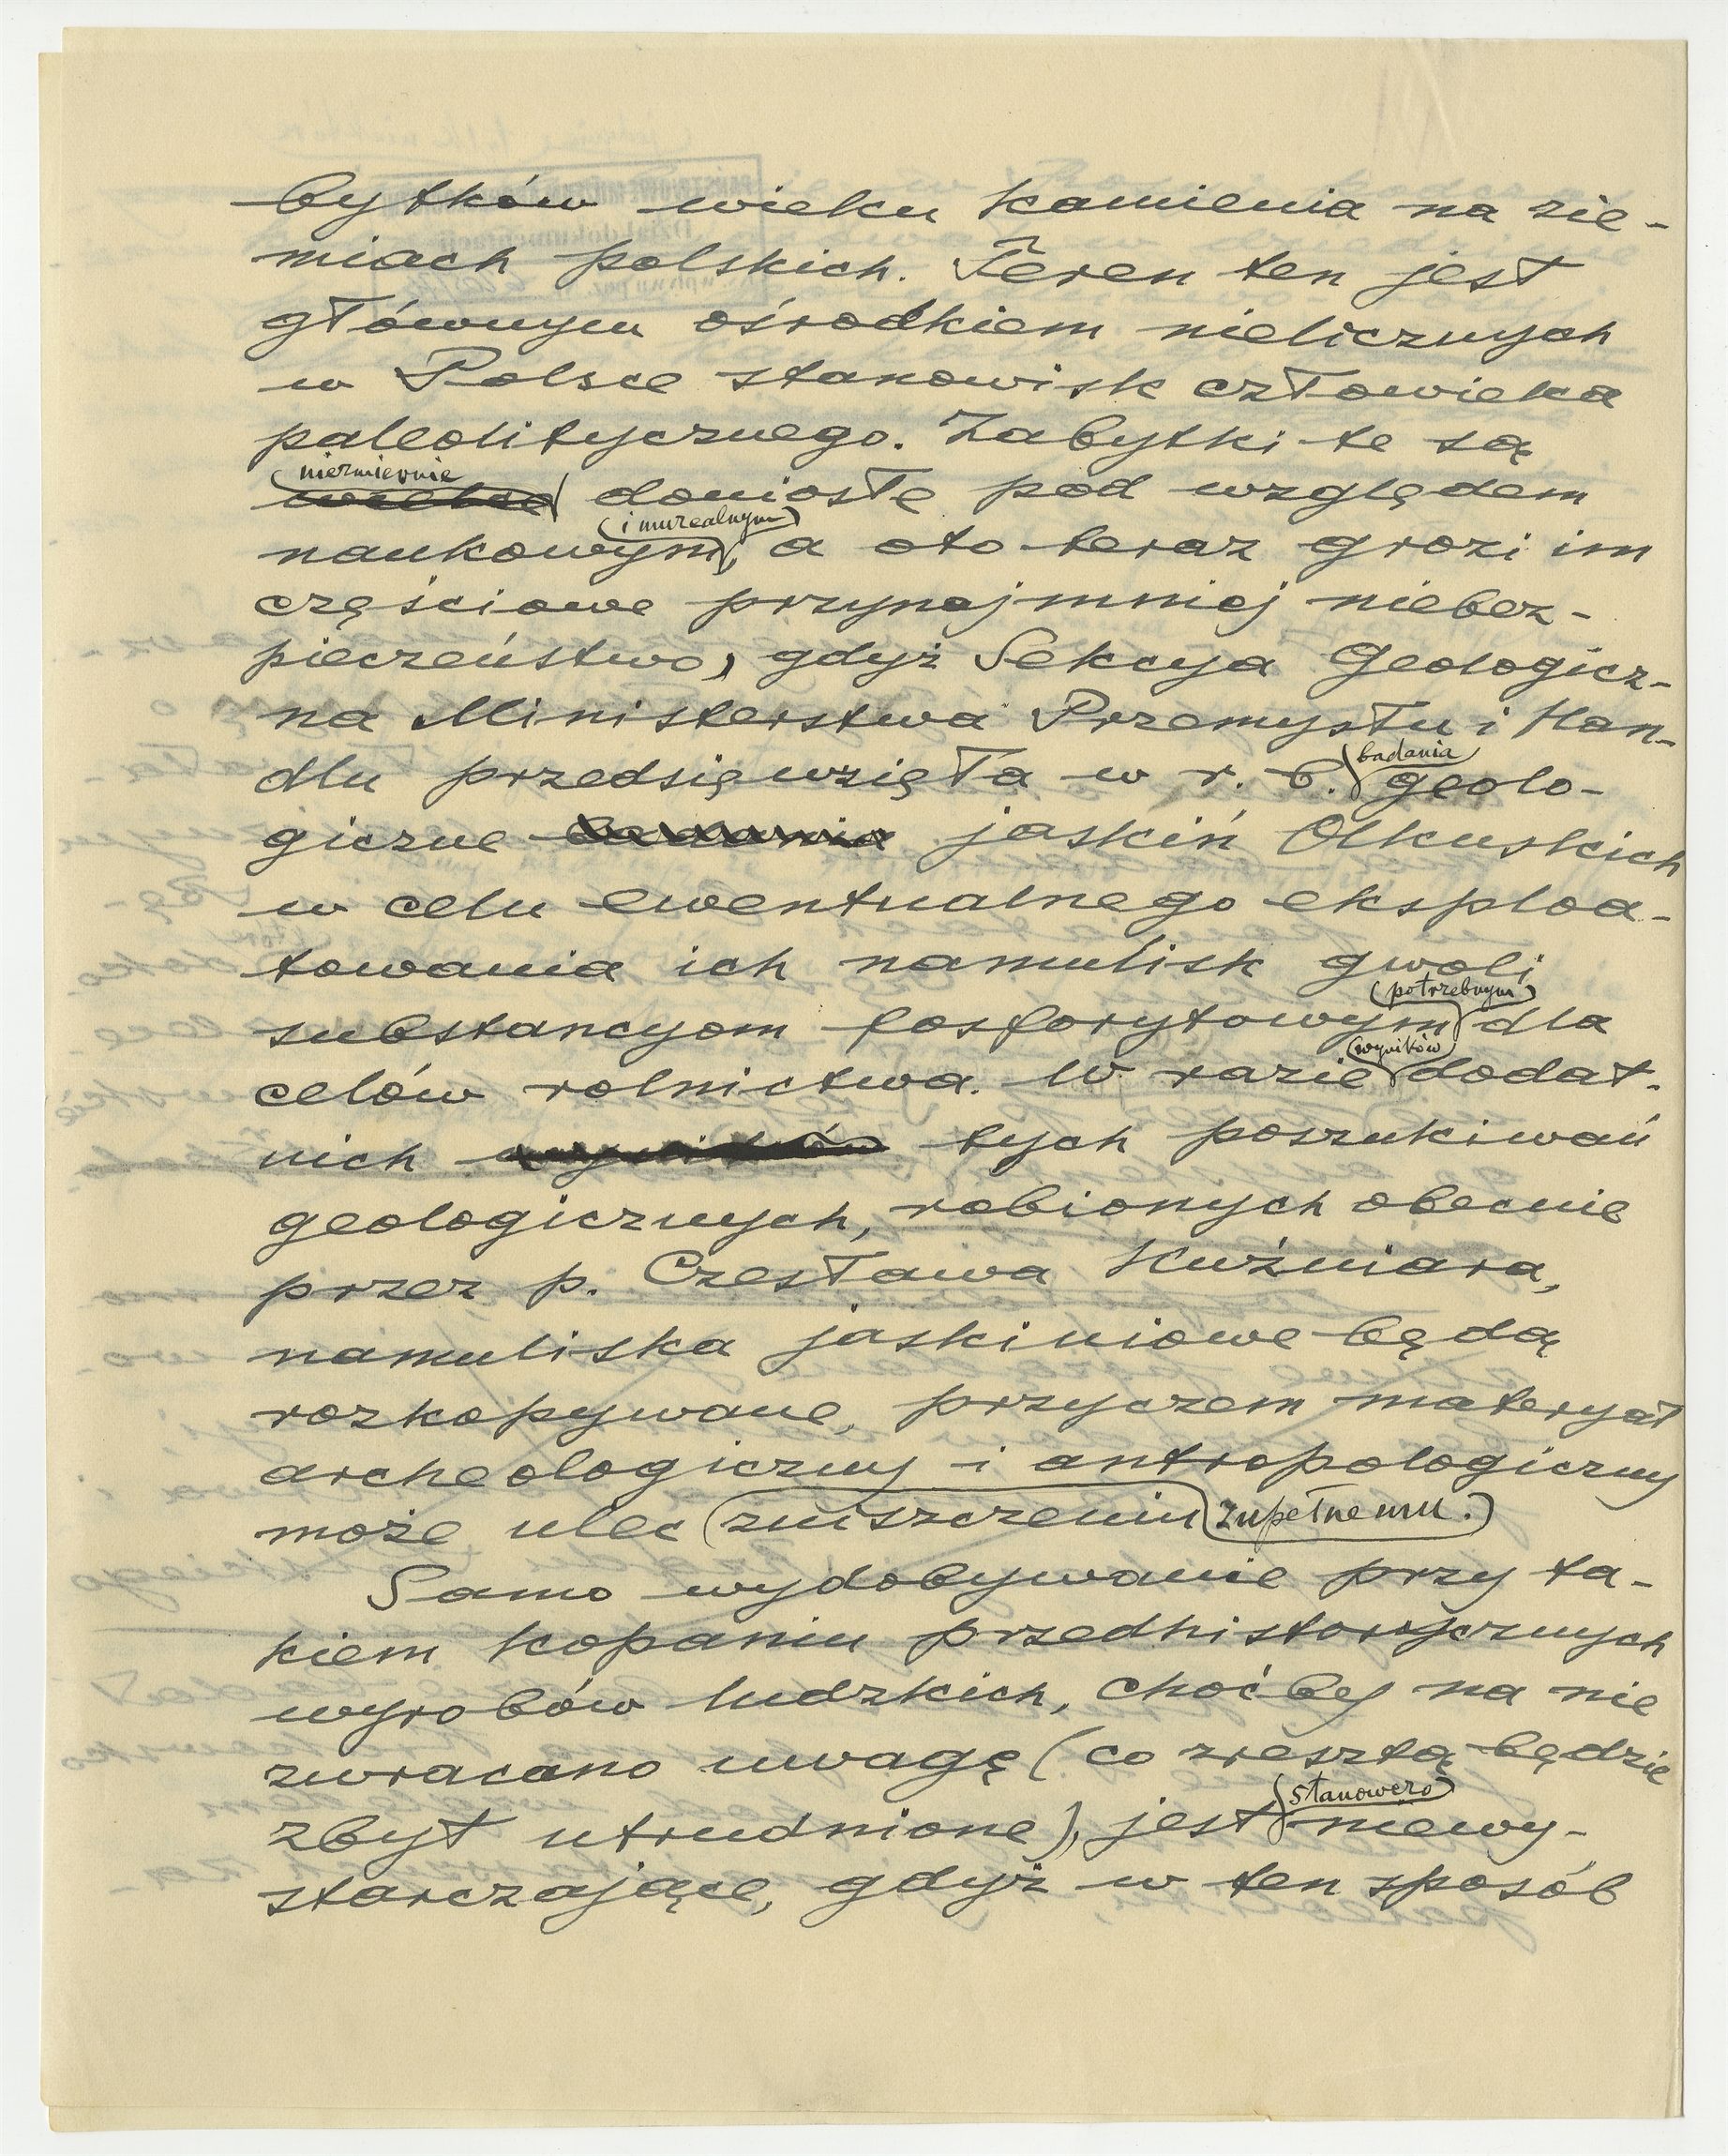 bytków wieku kamienia na zie-
miach polskich. Teren ten jest
głównym ośrodkiem nielicznych
w Polsce stanowisk człowieka
paleolitycznego. Zabytki te są
niezmiernie
doniosłe pod względem
i muzealnym
naukowym, a oto teraz grozi im
częściowe przynajmniej niebez-
pieczeństwo, gdyż Sekcya Geologicz-
na Ministerstwa Przemysłu i Han-
badania
dlu przedsięwzięła w r. b. geolo-
giczne badania jaskiń Olkuskich
w celu ewentualnego eksploa-
towania ich namulisk gwoli
potrzebnym
substancyom fosforytowym dla
wyników
celów rolnictwa. W razie dodat-
nich wyników tych poszukiwań
geologicznych, robionych obecnie
przez p. Czesława Kuźniara,
namuliska jaskiniowe będą
rozkopywane, przyczem materyał
archeologiczny i antropologiczny
może uledz zniszczeniu zupełnemu.
Samo wydobywanie przy ta-
kiem kopaniu przedhistorycznych
wyrobów ludzkich, choćby na nie
zwracano uwagę (co zresztą będzie
stanowczo
zbyt utrudnione), jest niewy-
starczające, gdyż w ten sposób